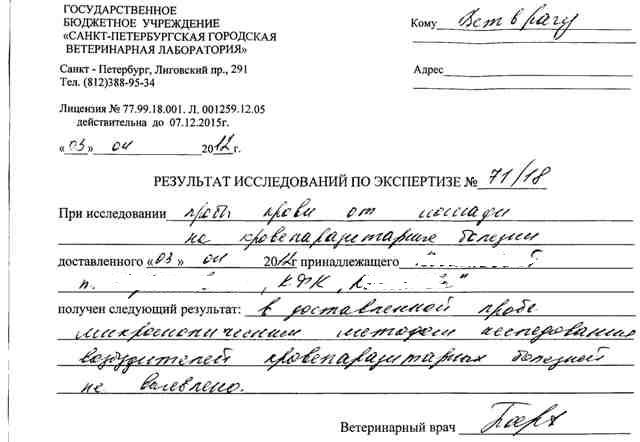 ГОСУДАРСТВЕННОЕ
БЮДЖЕТНОЕ УЧРЕЖДЕНИЕ
«САНКТ-ПЕТЕРБУРГСКАЯ ГОРОДСКАЯ
ВЕТЕРИНАРНАЯ ЛАБОРАТОРИЯ»
Санкт - Петербург, Лиговский пр., 291
Тел. (812)388-95-34
Лицензия № 77.99.18.001. Л. 001259.12.05
действительна до 07.12.2015г.
« 03 » 04 2012 г.
Кому Вет врачу
Адрес
РЕЗУЛЬТАТ ИССЛЕДОВАНИЙ ПО ЭКСПЕРТИЗЕ № 71/18
При исследовании пробы крови от лошади
на кровепаразитарные болезни
доставленного « 03 » 04 2012г принадлежащего
п. , КФК
получен следующий результат: в доставленной пробе
микроскопическим методом исследования
возбудителей кровепаразитарных болезней
не выявлено.
Ветеринарный врач